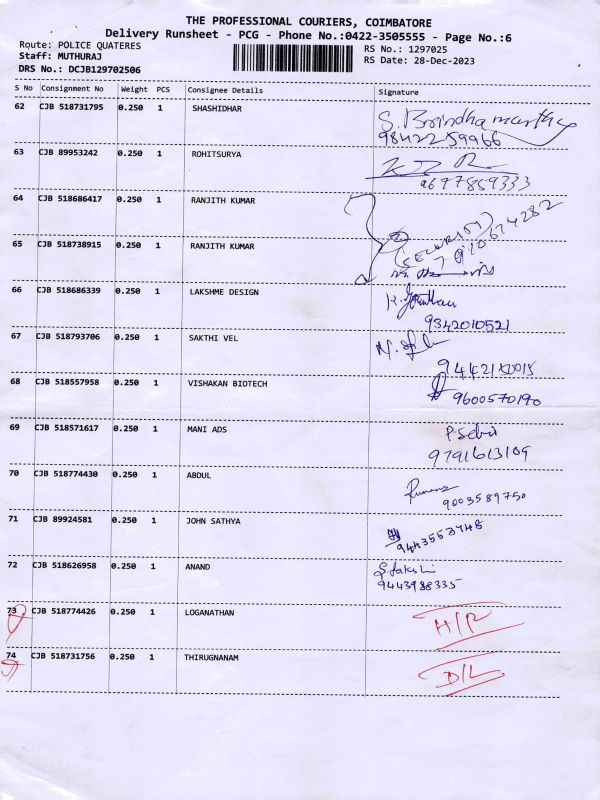 THE PROFESSIONAL COURIERS, COIMBATORE
Delivery Runsheet - PCG - Phone No.:0422-3505555 - Page No.:6
Route: POLICE QUATERES RS No.: 1297025
Staff: MUTHURAJ RS Date: 28-Dec-2023
DRS No.: DCJB129702506
S No Consignment No Weight PCS Consignee Details Signature
62 CJB 518731795 0.250 1 SHASHIDHAR S. Brindha
98422 59966
63 CJB 89953242 0.250 1 ROHITSURYA
9677859333
64 CJB 518686417 0.250 1 RANJITH KUMAR
65 CJB 518738915 0.250 1 RANJITH KUMAR
66 CJB 518686339 0.250 1 LAKSHME DESIGN
9342010521
67 CJB 518793706 0.250 1 SAKTHI VEL
68 CJB 518557958 0.250 1 VISHAKAN BIOTECH
9600570190
69 CJB 518571617 0.250 1 MANI ADS
9791613109
70 CJB 518774430 0.250 1 ABDUL
9003589750
71 CJB 89924581 0.250 1 JOHN SATHYA
9443553748
72 CJB 518626958 0.250 1 ANAND
9443988335
73 CJB 518774426 0.250 1 LOGANATHAN
74 CJB 518731756 0.250 1 THIRUGNANAM D/L